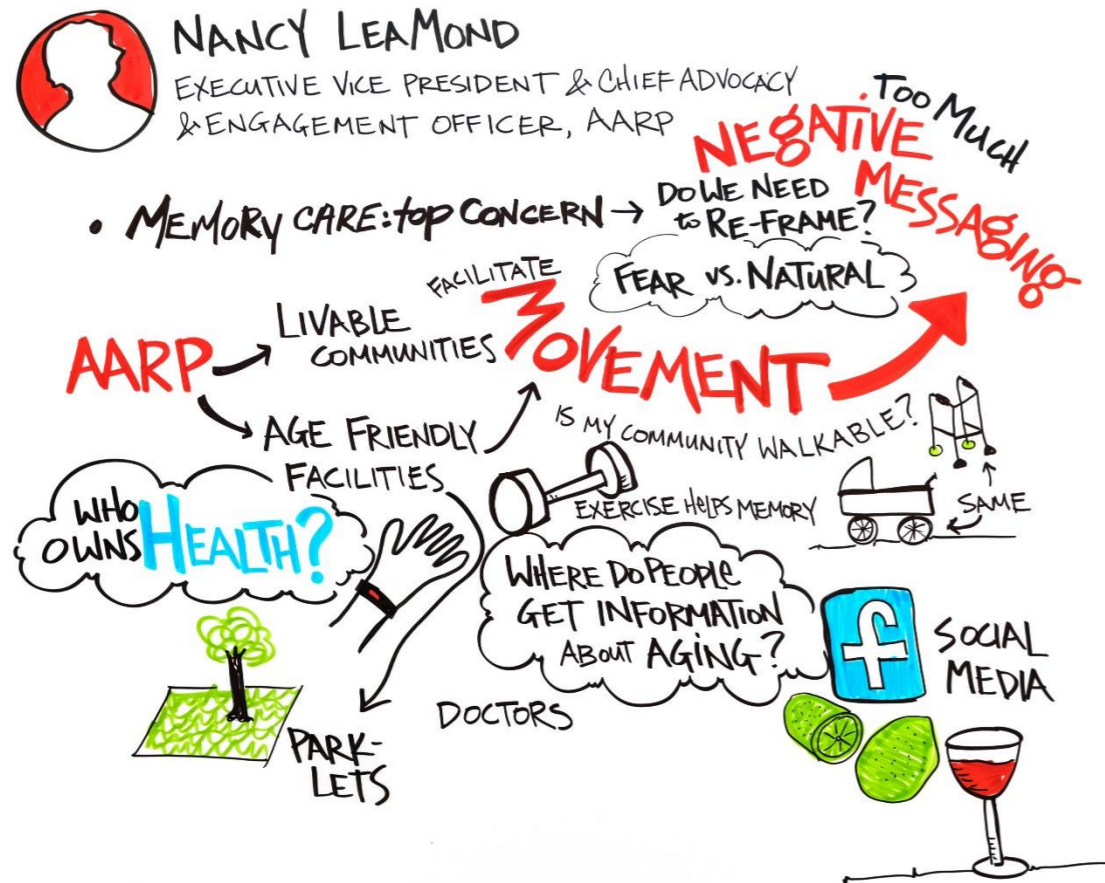 NANCY LEAMOND
EXECUTIVE VICE PRESIDENT & CHIEF ADVOCACY
& ENGAGEMENT OFFICER, AARP
TOO MUCH
NEGATIVE
MESSAGING
• MEMORY CARE: TOP CONCERN →
DO WE NEED
TO RE-FRAME?
FEAR VS. NATURAL
AARP
LIVABLE
COMMUNITIES
AGE FRIENDLY
FACILITIES
FACILITATE
MOVEMENT
IS MY COMMUNITY WALKABLE?
SAME
EXERCISE HELPS MEMORY
WHO
OWNS HEALTH?
WHERE DO PEOPLE
GET INFORMATION
ABOUT AGING?
f
SOCIAL
MEDIA
DOCTORS
PARK-
LETS